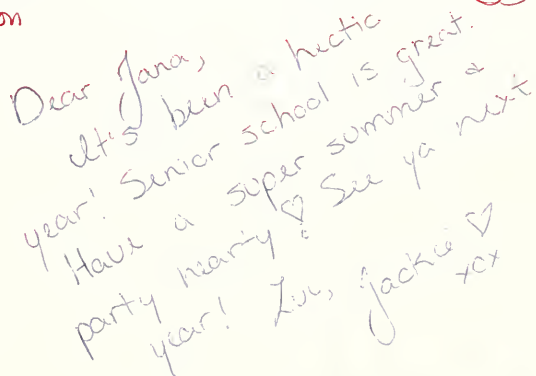 on
Dear Jana,
It's been a hectic
year! Senior school is great.
Have a super summer &
party hearty! See ya next
year! Luv, Jackie
xox